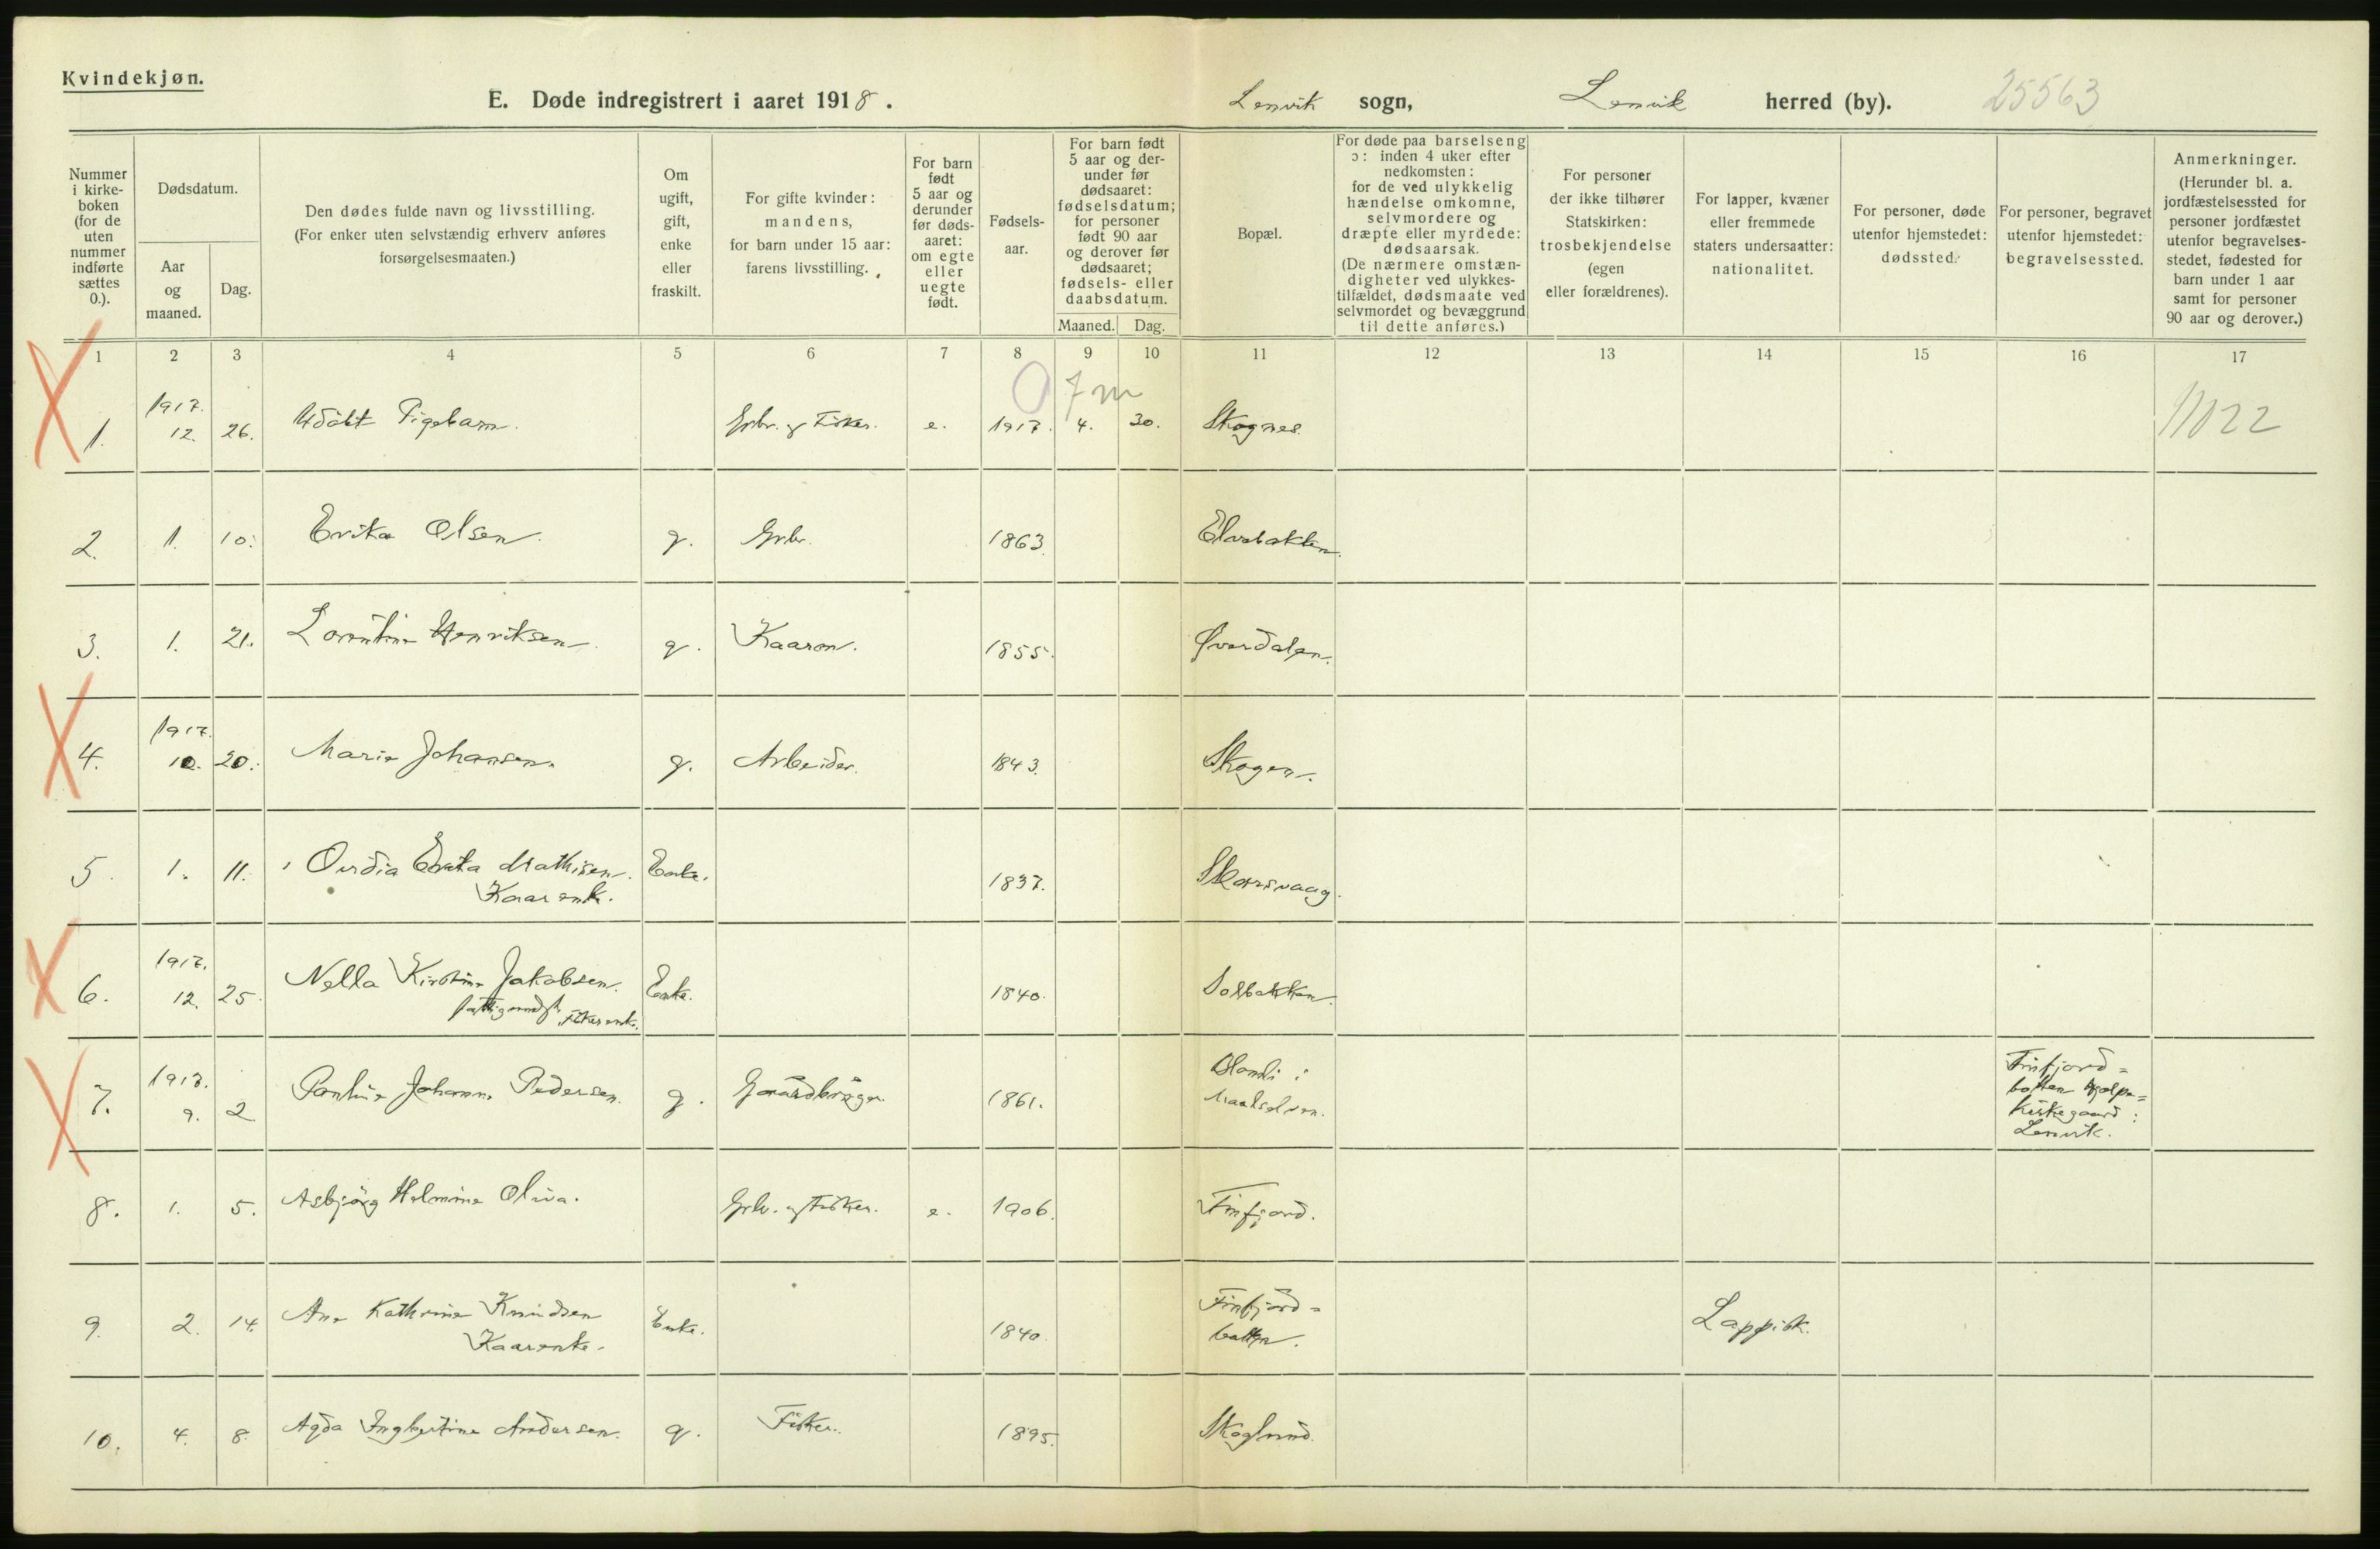 Kvindekjøn.
E. Døde indregistrert i aaret 1918.
Lenvik sogn, Lenvik herred (by). 25563
Nummer i kirke-boken (for de uten nummer indførte sættes 0.).
Dødsdatum.
Aar og maaned.
Dag.
Den dødes fulde navn og livsstilling.
(For enker uten selvstændig erhverv anføres
forsørgelsesmaaten.)
Om ugift, gift, enke eller fraskilt.
For gifte kvinder: mandens, for barn under 15 aar: farens livsstilling.
For barn født 5 aar og derunder før døds-aaret: om egte eller uegte født.
Fødsels-aar.
For barn født 5 aar og der-under før dødsaaret: fødselsdatum; for personer født 90 aar og derover før dødsaaret; fødsels- eller daabsdatum.
Maaned. Dag.
Bopæl.
For døde paa barselseng ɔ: inden 4 uker efter nedkomsten: for de ved ulykkelig hændelse omkomne, selvmordere og dræpte eller myrdede: dødsaarsak. (De nærmere omstæn-digheter ved ulykkes-tilfældet, dødsmaate ved selvmordet og bevæggrund til dette anføres.)
For personer der ikke tilhører Statskirken: trosbekjendelse (egen eller forældrenes).
For lapper, kvæner eller fremmede staters undersaatter: nationalitet.
For personer, døde utenfor hjemstedet: dødssted.
For personer, begravet utenfor hjemstedet: begravelsessted.
Anmerkninger. (Herunder bl. a. jordfæstelsessted for personer jordfæstet utenfor begravelses-stedet, fødested for barn under 1 aar samt for personer 90 aar og derover.)
1 2 3 4 5 6 7 8 9 10 11 12 13 14 15 16 17
0 7 m
1. 1917. 12. 26. Udöbt Pigebarn. Grbr. og Fisker. e. 1917. 4. 30. Skognes. 11022
2. 1. 10. Erika Olsen. g. Grbr. 1863. Elvebakken.
3. 1. 21. Lorentine Henriksen. g. Kaarm. 1855. Øverdalen.
4. 1917. 10. 20. Marie Johansen. g. Arbeider. 1843. Skogen.
5. 1. 11. Ovidia Erika Mathisen. Enke. 1837.
Kaarenke.
6. 1917. 12. 25. Nella Kirstine Jakobsen. Enke. 1840. Solbakken.
fattigunderst. Fiskerenke.
7. 1917. 9. 2 Pauline Johanna Pedersen. g. Gaardbruger. 1861. i
Maalselven.
Finfjord=
botten hjelpe=
kirkegaard i
Lenvik.
8. 1. 5. Asbjörg Helmine Oliva. Grbr. og Fisker. e. 1906. Finfjord.
9. 2. 14. Ane Kathrine Knudsen Enke. 1840. Finfjord=
Kaarenke. botten. Lappisk.
10. 4. 8. Agda Ingbertine Andersen. g. Fisker. 1895. Skoglund.